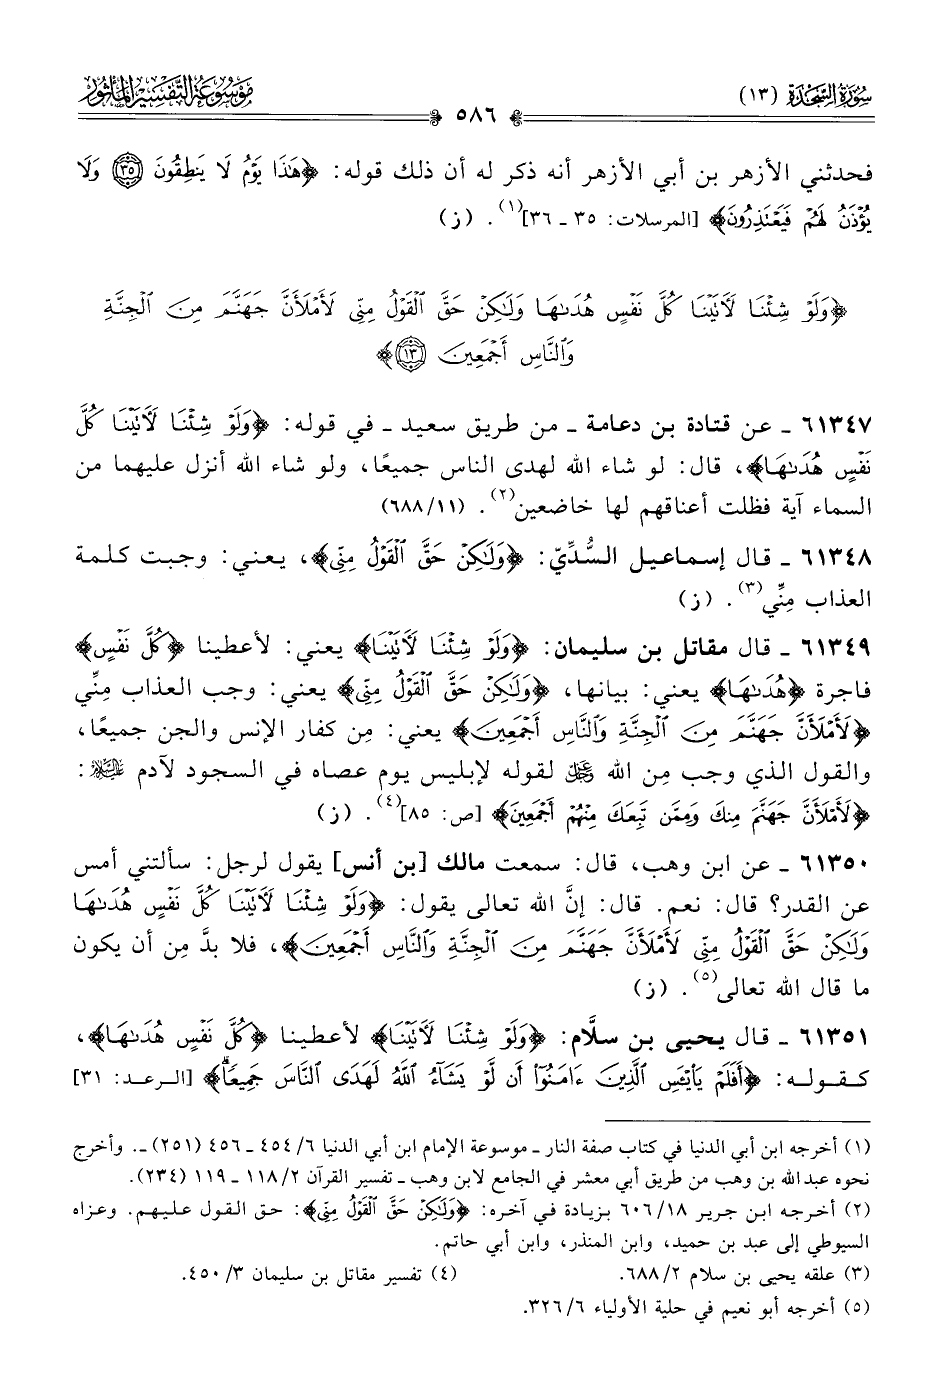 سورة السجدة (١٣)
٥٨٦
موسوعة التفسير المأثور
فحدثني الأزهر بن أبي الأزهر أنه ذكر له أن ذلك قوله: ﴿هَٰذَا يَوْمُ لَا يَنطِقُونَ ۝٣٥ وَلَا
يُؤْذَنُ لَهُمْ فَيَعْتَذِرُونَ﴾ [المرسلات: ٣٥ ـ ٣٦](١). (ز)
﴿وَلَوْ شِئْنَا لَآتَيْنَا كُلَّ نَفْسٍ هُدَىٰهَا وَلَٰكِنْ حَقَّ ٱلْقَوْلُ مِنِّى لَأَمْلَأَنَّ جَهَنَّمَ مِنَ ٱلْجِنَّةِ
وَٱلنَّاسِ أَجْمَعِينَ ۝١٣﴾
٦١٣٤٧ ـ عن قتادة بن دعامة ـ من طريق سعيد ـ في قوله: ﴿وَلَوْ شِئْنَا لَآتَيْنَا كُلَّ
نَفْسٍ هُدَىٰهَا﴾، قال: لو شاء الله لهدى الناس جميعًا، ولو شاء الله أنزل عليهما من
السماء آية فظلت أعناقهم لها خاضعين(٢). (١١/٦٨٨)
٦١٣٤٨ ـ قال إسماعيل السُّدِّيّ: ﴿وَلَٰكِنْ حَقَّ ٱلْقَوْلُ مِنِّى﴾، يعني: وجبت كلمة
العذاب مِنِّي(٣). (ز)
٦١٣٤٩ ـ قال مقاتل بن سليمان: ﴿وَلَوْ شِئْنَا لَآتَيْنَا﴾ يعني: لأعطينا ﴿كُلَّ نَفْسٍ﴾
فاجرة ﴿هُدَىٰهَا﴾ يعني: بيانها، ﴿وَلَٰكِنْ حَقَّ ٱلْقَوْلُ مِنِّى﴾ يعني: وجب العذاب مِنِّي
﴿لَأَمْلَأَنَّ جَهَنَّمَ مِنَ ٱلْجِنَّةِ وَٱلنَّاسِ أَجْمَعِينَ﴾ يعني: مِن كفار الإنس والجن جميعًا،
والقول الذي وجب مِن الله عز وجل لقوله لإبليس يوم عصاه في السجود لآدم عليه السلام:
﴿لَأَمْلَأَنَّ جَهَنَّمَ مِنكَ وَمِمَّن تَبِعَكَ مِنْهُمْ أَجْمَعِينَ﴾ [ص: ٨٥](٤). (ز)
٦١٣٥٠ ـ عن ابن وهب، قال: سمعت مالك [بن أنس] يقول لرجل: سألتني أمس
عن القدر؟ قال: نعم. قال: إنَّ الله تعالى يقول: ﴿وَلَوْ شِئْنَا لَآتَيْنَا كُلَّ نَفْسٍ هُدَىٰهَا
وَلَٰكِنْ حَقَّ ٱلْقَوْلُ مِنِّى لَأَمْلَأَنَّ جَهَنَّمَ مِنَ ٱلْجِنَّةِ وَٱلنَّاسِ أَجْمَعِينَ﴾، فلا بدَّ مِن أن يكون
ما قال الله تعالى(٥). (ز)
٦١٣٥١ ـ قال يحيى بن سلَّام: ﴿وَلَوْ شِئْنَا لَآتَيْنَا﴾ لأعطينا ﴿كُلَّ نَفْسٍ هُدَىٰهَا﴾،
كقوله: ﴿أَفَلَمْ يَا۟يْـَٔسِ ٱلَّذِينَ ءَامَنُوٓا۟ أَن لَّوْ يَشَآءُ ٱللَّهُ لَهَدَى ٱلنَّاسَ جَمِيعًا﴾ [الرعد: ٣١]
(١) أخرجه ابن أبي الدنيا في كتاب صفة النار ـ موسوعة الإمام ابن أبي الدنيا ٦/٤٥٤ ـ ٤٥٦ (٢٥١) ـ. وأخرج
نحوه عبد الله بن وهب من طريق أبي معشر في الجامع لابن وهب ـ تفسير القرآن ٢/١١٨ ـ ١١٩ (٢٣٤).
(٢) أخرجه ابن جرير ١٨/٦٠٦ بزيادة في آخره: ﴿وَلَٰكِنْ حَقَّ ٱلْقَوْلُ مِنِّى﴾: حق القول عليهم. وعزاه
السيوطي إلى عبد بن حميد، وابن المنذر، وابن أبي حاتم.
(٣) علقه يحيى بن سلام ٢/٦٨٨. (٤) تفسير مقاتل بن سليمان ٣/٤٥٠.
(٥) أخرجه أبو نعيم في حلية الأولياء ٦/٣٢٦.